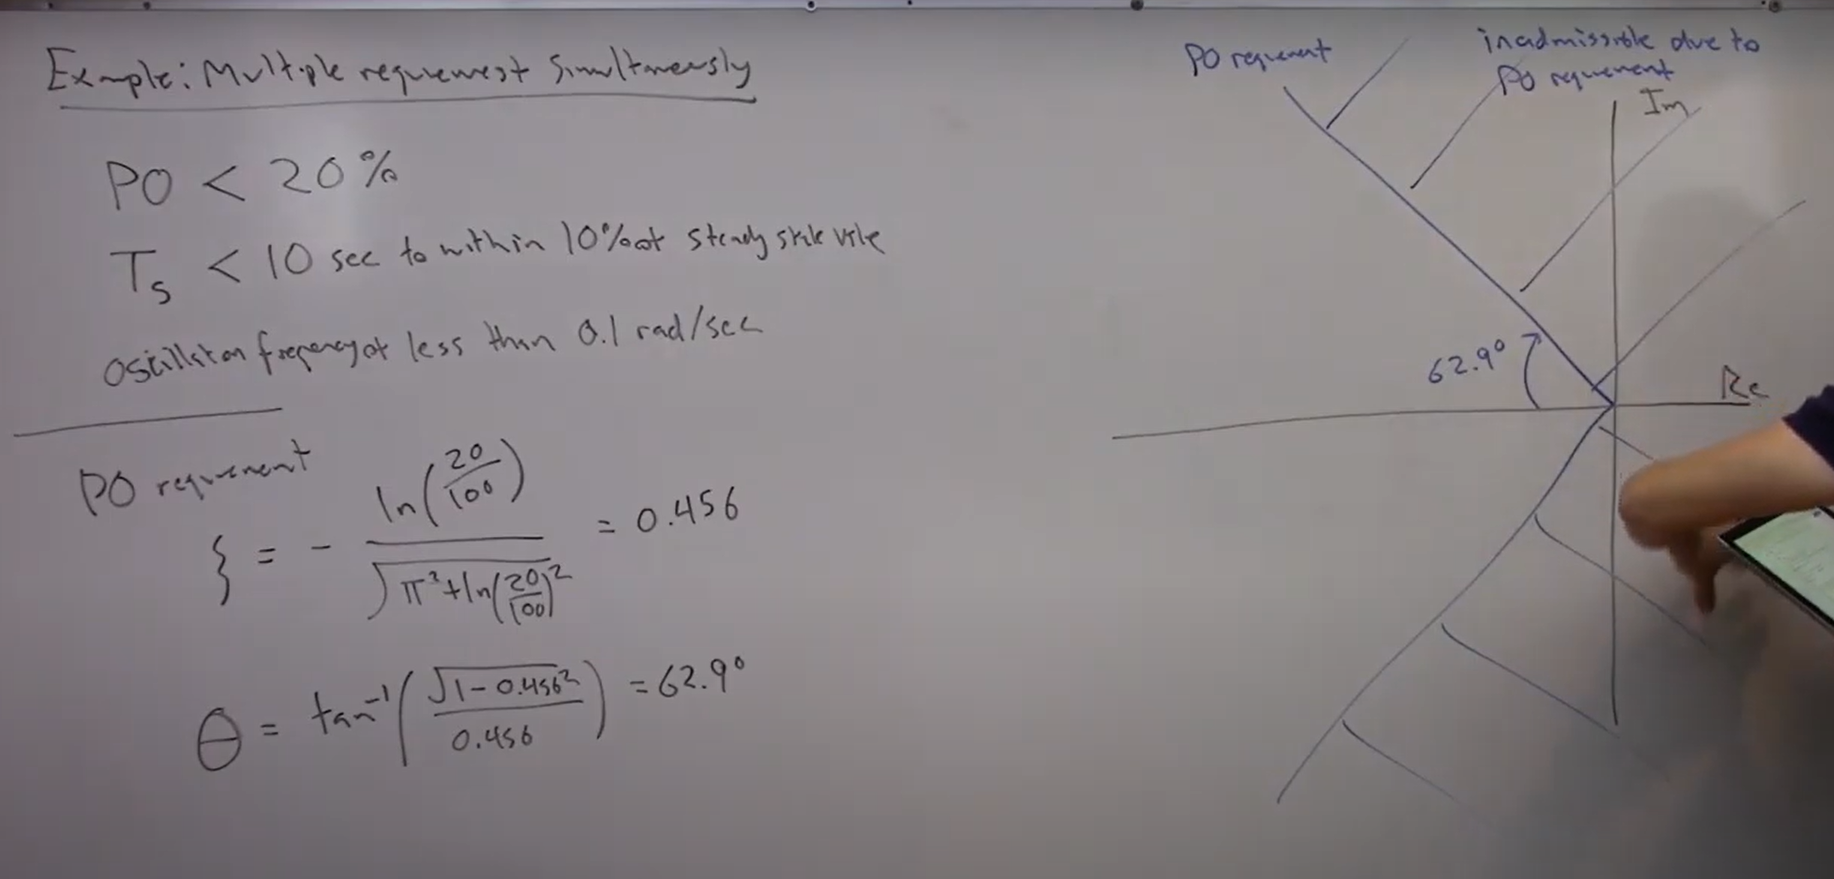 Example: Multiple requirement Simultaneously
PO < 20%
Ts < 10 sec to within 10% of steady state value
oscillation frequency of less than 0.1 rad/sec
PO requirement
ξ = - ln(20/100) / √(π²+ln(20/100)²) = 0.456
θ = tan⁻¹(√(1-0.456²) / 0.456) = 62.9°
PO requirement
inadmissible due to
PO requirement
Im
62.9°
Re